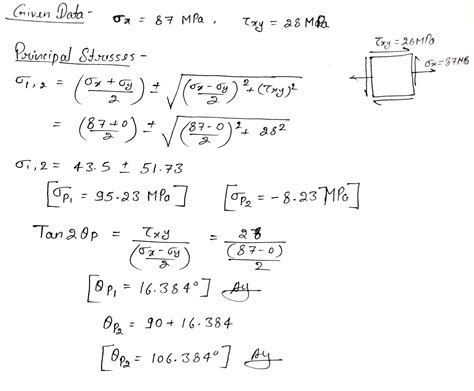 Given Data - σx = 87 MPa , τxy = 28 MPa
Principal Stresses -
τxy = 28MPa
σx = 87MPa
σ1,2 = ((σx + σy)/2) ± √(((σx - σy)/2)² + (τxy)²)
= ((87+0)/2) ± √(((87-0)/2)² + 28²)
σ1,2 = 43.5 ± 51.73
[σP1 = 95.23 MPa] [σP2 = -8.23 MPa]
Tan2θP = τxy/((σx - σy)/2) = 28/((87-0)/2)
[θP1 = 16.384°]
θP2 = 90 + 16.384
[θP2 = 106.384°]